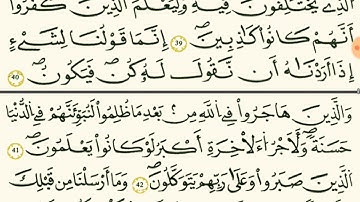 ٱلَّذِى يَخْتَلِفُونَ فِيهِ وَلِيَعْلَمَ ٱلَّذِينَ كَفَرُوٓا۟
أَنَّهُمْ كَانُوا۟ كَٰذِبِينَ ۝٣٩ إِنَّمَا قَوْلُنَا لِشَىْءٍ
إِذَآ أَرَدْنَٰهُ أَن نَّقُولَ لَهُۥ كُن فَيَكُونُ ۝٤٠
وَٱلَّذِينَ هَاجَرُوا۟ فِى ٱللَّهِ مِنۢ بَعْدِ مَا ظُلِمُوا۟ لَنُبَوِّئَنَّهُمْ فِى ٱلدُّنْيَا
حَسَنَةً وَلَأَجْرُ ٱلْءَاخِرَةِ أَكْبَرُ لَوْ كَانُوا۟ يَعْلَمُونَ ۝٤١
ٱلَّذِينَ صَبَرُوا۟ وَعَلَىٰ رَبِّهِمْ يَتَوَكَّلُونَ ۝٤٢ وَمَآ أَرْسَلْنَا مِن قَبْلِكَ